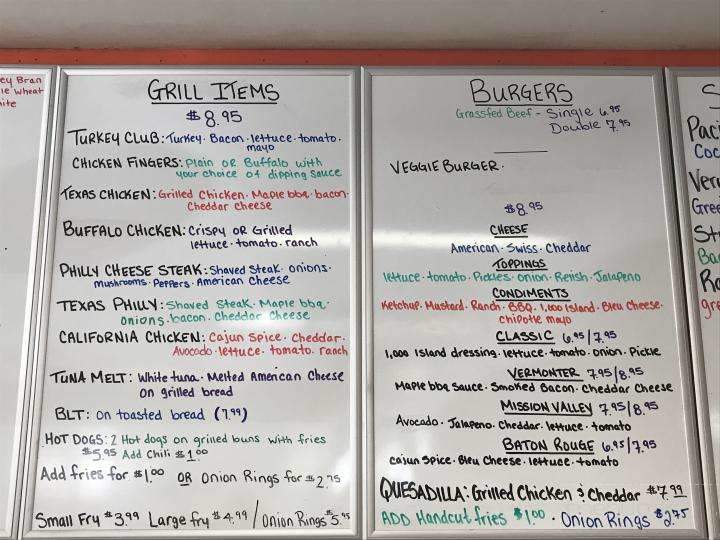 ey Bran
le wheat
hite
GRILL ITEMS
$8.95
TURKEY CLUB: Turkey. Bacon. lettuce. tomato.
mayo
CHICKEN FINGERS: Plain OR Buffalo with
your choice of dipping sauce
TEXAS CHICKEN: Grilled Chicken. Maple bbq. bacon.
Cheddar cheese
BUFFALO CHICKEN: Crispy OR Grilled
lettuce. tomato. ranch
PHILLY CHEESE STEAK: Shaved Steak. onions.
mushrooms. Peppers. American Cheese
TEXAS PHILLY: Shaved Steak. Maple bbq.
onions. bacon. Cheddar Cheese
CALIFORNIA CHICKEN: Cajun Spice. Cheddar.
Avocado. lettuce. tomato. ranch
TUNA MELT: White tuna. Melted American Cheese
on grilled bread
BLT: On toasted bread (7.99)
HOT DOGS: 2 Hot dogs on grilled buns with fries
$5.95 Add Chili $1.00
Add fries for $1.00 OR Onion Rings for $2.75
Small Fry $3.99 Large fry $4.99 / Onion Rings $5.95
BURGERS
Grassfed Beef - Single 6.95
Double 7.95
VEGGIE BURGER.
$8.95
CHEESE
American. Swiss. Cheddar
TOPPINGS
lettuce. tomato. Pickles. onion. Relish. Jalapeno
CONDIMENTS
Ketchup. Mustard. Ranch. BBQ. 1,000 Island. Bleu Cheese.
Chipotle mayo
CLASSIC 6.95/7.95
1,000 Island dressing. lettuce. tomato. onion. Pickle
VERMONTER 7.95/8.95
Maple bbq Sauce. Smoked Bacon. Cheddar Cheese
MISSION VALLEY 7.95/8.95
Avocado. Jalapeno. Cheddar. lettuce. tomato
BATON ROUGE 6.95/7.95
Cajun Spice. Bleu Cheese. lettuce. tomato
QUESADILLA: Grilled Chicken & Cheddar $7.99
ADD Handcut fries $1.00 . Onion Rings $2.75
S
Paci
Coc
Ver
Gree
St
Ba
Ro
gr